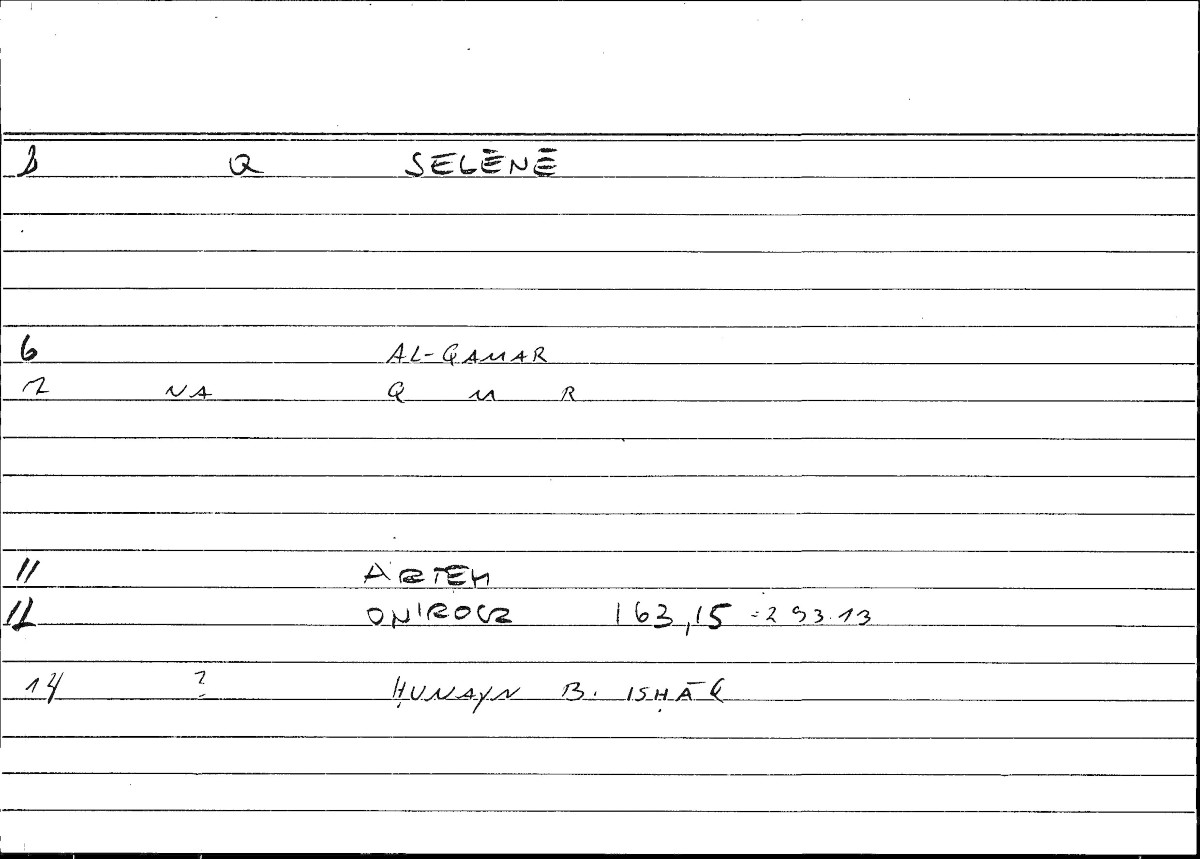 1 Q SELĒNĒ
6 AL-QAMAR
7 NA Q M R
11 ARTEM
12 ONIROCR 163,15 = 293.13
14 ? ḤUNAYN B. ISḤĀQ